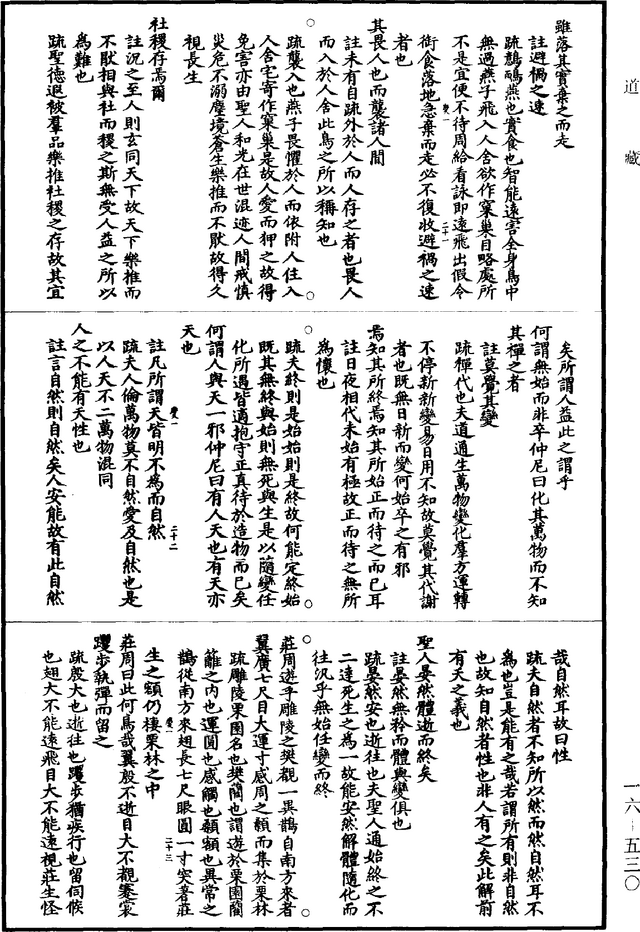 道藏
雖落其實棄之而走
註避禍之速
疏鷾鴯燕也實食也智能遠害全身鳥中
無過燕子飛入人舍欲作窠巢目略處所
不是宜便不待周給看詠即遠飛出假令
銜食落地急棄而走必不復收避禍之速
者也
其畏人也而襲諸人間
註未有自疏外於人而人存之者也畏人
而入於人舍此鳥之所以稱知也
疏襲入也燕子畏懼於人而依附人住入
人舍宅寄作窠巢是故人愛而狎之故得
免害亦由聖人和光在世混迹人間戒慎
災危不溺塵境蒼生樂推而不猒故得久
視長生
社稷存焉爾
註況之至人則玄同天下故天下樂推而
不猒相與社而稷之斯無受人益之所以
為難也
疏聖德遐被羣品樂推社稷之存故其宜
矣所謂人益此之謂乎
何謂無始而非卒仲尼曰化其萬物而不知
其禪之者
註莫覺其變
疏禪代也夫道通生萬物變化羣方運轉
不停新新變易日用不知故莫覺其代謝
者也既無日新而變何始卒之有邪
焉知其所終焉知其所始正而待之而已耳
註日夜相代未始有極故正而待之無所
為懷也
疏夫終則是始始則是終故何能定終始
既其無終與始則無死與生是以隨變任
化所遇皆適抱守正真待於造物而已矣
何謂人與天一邪仲尼曰有人天也有天亦
天也
註凡所謂天皆明不為而自然
疏夫人倫萬物莫不自然愛及自然也是
以人天不二萬物混同
人之不能有天性也
註言自然則自然矣人安能故有此自然
哉自然耳故曰性
疏夫自然者不知所以然而然自然耳不
為也豈是能有之哉若謂所有則非自然
也故知自然者性也非人有之矣此解前
有天之義也
聖人晏然體逝而終矣
註晏然無矜而體與變俱也
疏晏然安也逝往也夫聖人通始終之不
二達死生之為一故能安然解體隨化而
往汎乎無始任變而終
莊周遊乎雕陵之樊覩一異鵲自南方來者
翼廣七尺目大運寸感周之顙而集於栗林
疏雕陵栗園名也樊藺也謂遊於栗園藺
籬之內也運圓也感觸也顙額也異常之
鵲從南方來翅長七尺眼圓一寸突著莊
生之額仍棲栗林之中
莊周曰此何鳥哉翼殷不逝目大不覩蹇裳
躩步執彈而留之
疏殷大也逝往也躩步猶疾行也留伺候
也翅大不能遠飛目大不能遠視莊生怪
一六－五三〇